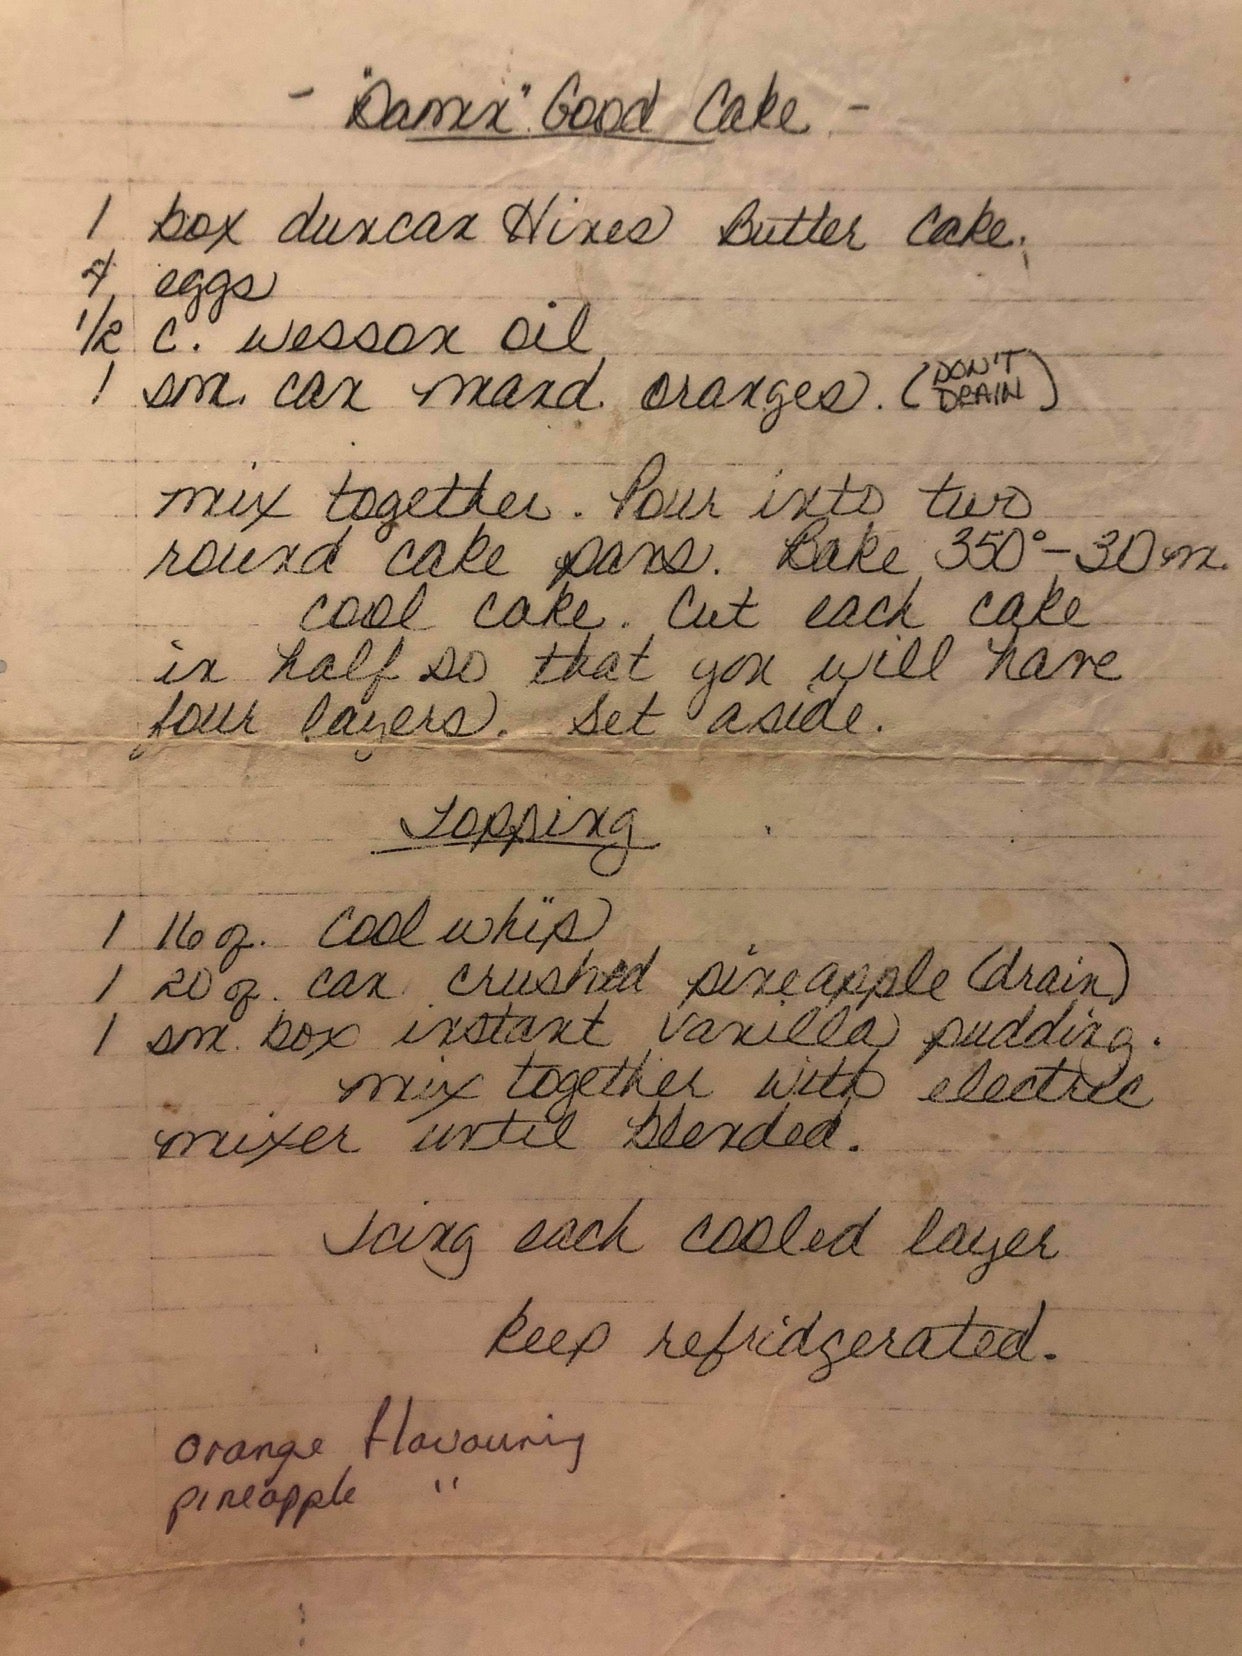 - "Damn" Good Cake -
1 box duncan Hines Butter Cake.
4 eggs
1/2 c. wesson oil
1 sm. can mand. oranges. (DON'T DRAIN)
mix together. Pour into two
round cake pans. Bake 350° - 30 m.
cool cake. Cut each cake
in half so that you will have
four layers. Set aside.
Topping
1 16 oz. cool whip
1 20 oz. can crushed pineapple (drain)
1 sm. box instant vanilla pudding.
mix together with electric
mixer until blended.
Icing each cooled layer
keep refridgerated.
orange flavouring
pineapple "